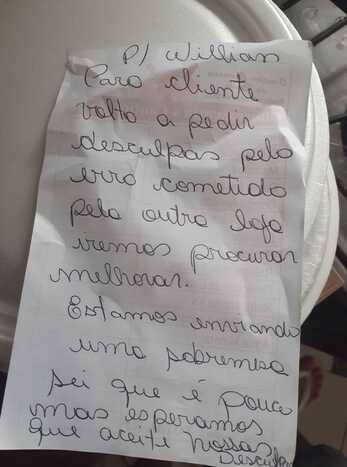 P/ Willian
Caro cliente
volto a pedir
desculpas pelo
erro cometido
pela outra loja
iremos procurar
melhorar.
Estamos enviando
uma sobremesa
sei que é pouco
mas esperamos
que aceite nossas
Desculpas